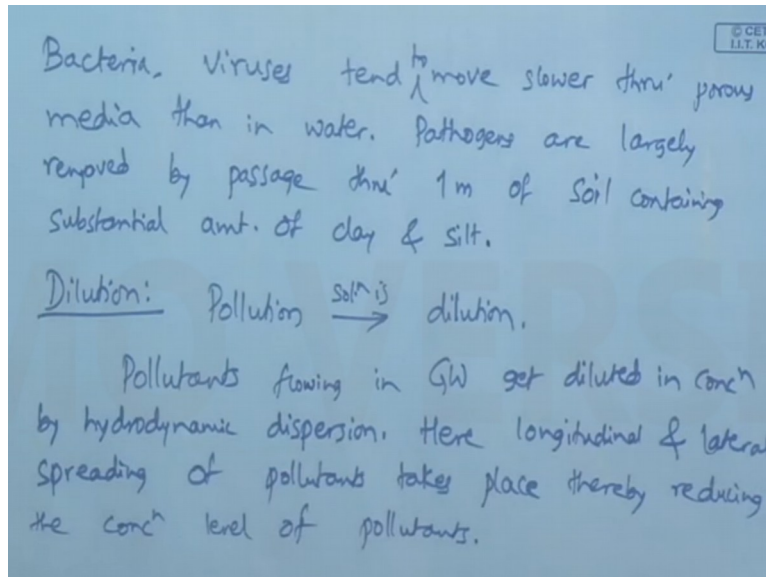 © CET
I.I.T. K
Bacteria, Viruses tend to move slower thru' porous
media than in water. Pathogens are largely
removed by passage thru' 1 m of soil containing
substantial amt. of clay & silt.
Dilution: Pollution solⁿ is → dilution.
Pollutants flowing in GW get diluted in concⁿ
by hydrodynamic dispersion. Here longitudinal & lateral
spreading of pollutants takes place thereby reducing
the concⁿ level of pollutants.